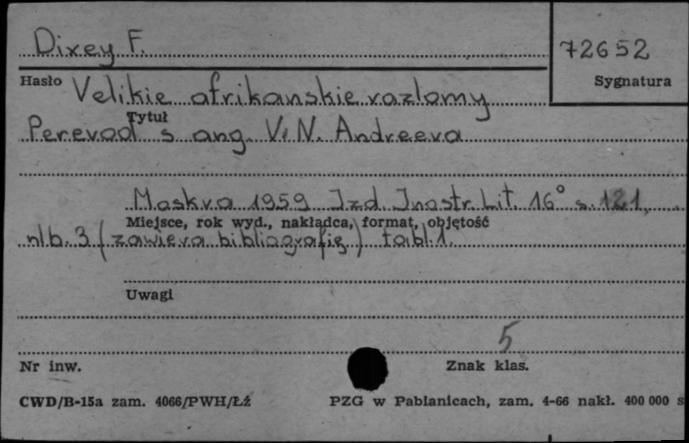 Dixey F.
72652
Hasło
Sygnatura
Velikie afrikanskie razlomy
Tytuł
Perevod s ang. V.N. Andreeva
Moskva 1959 Izd. Inostr. Lit. 16° s. 121,
Miejsce, rok wyd., nakładca, format, objętość
nlb. 3 (zawiera bibliografię) tabl. 1.
Uwagi
5
Nr inw.
Znak klas.
CWD/B-15a zam. 4066/PWH/Łź
PZG w Pabianicach, zam. 4-66 nakł. 400 000 s